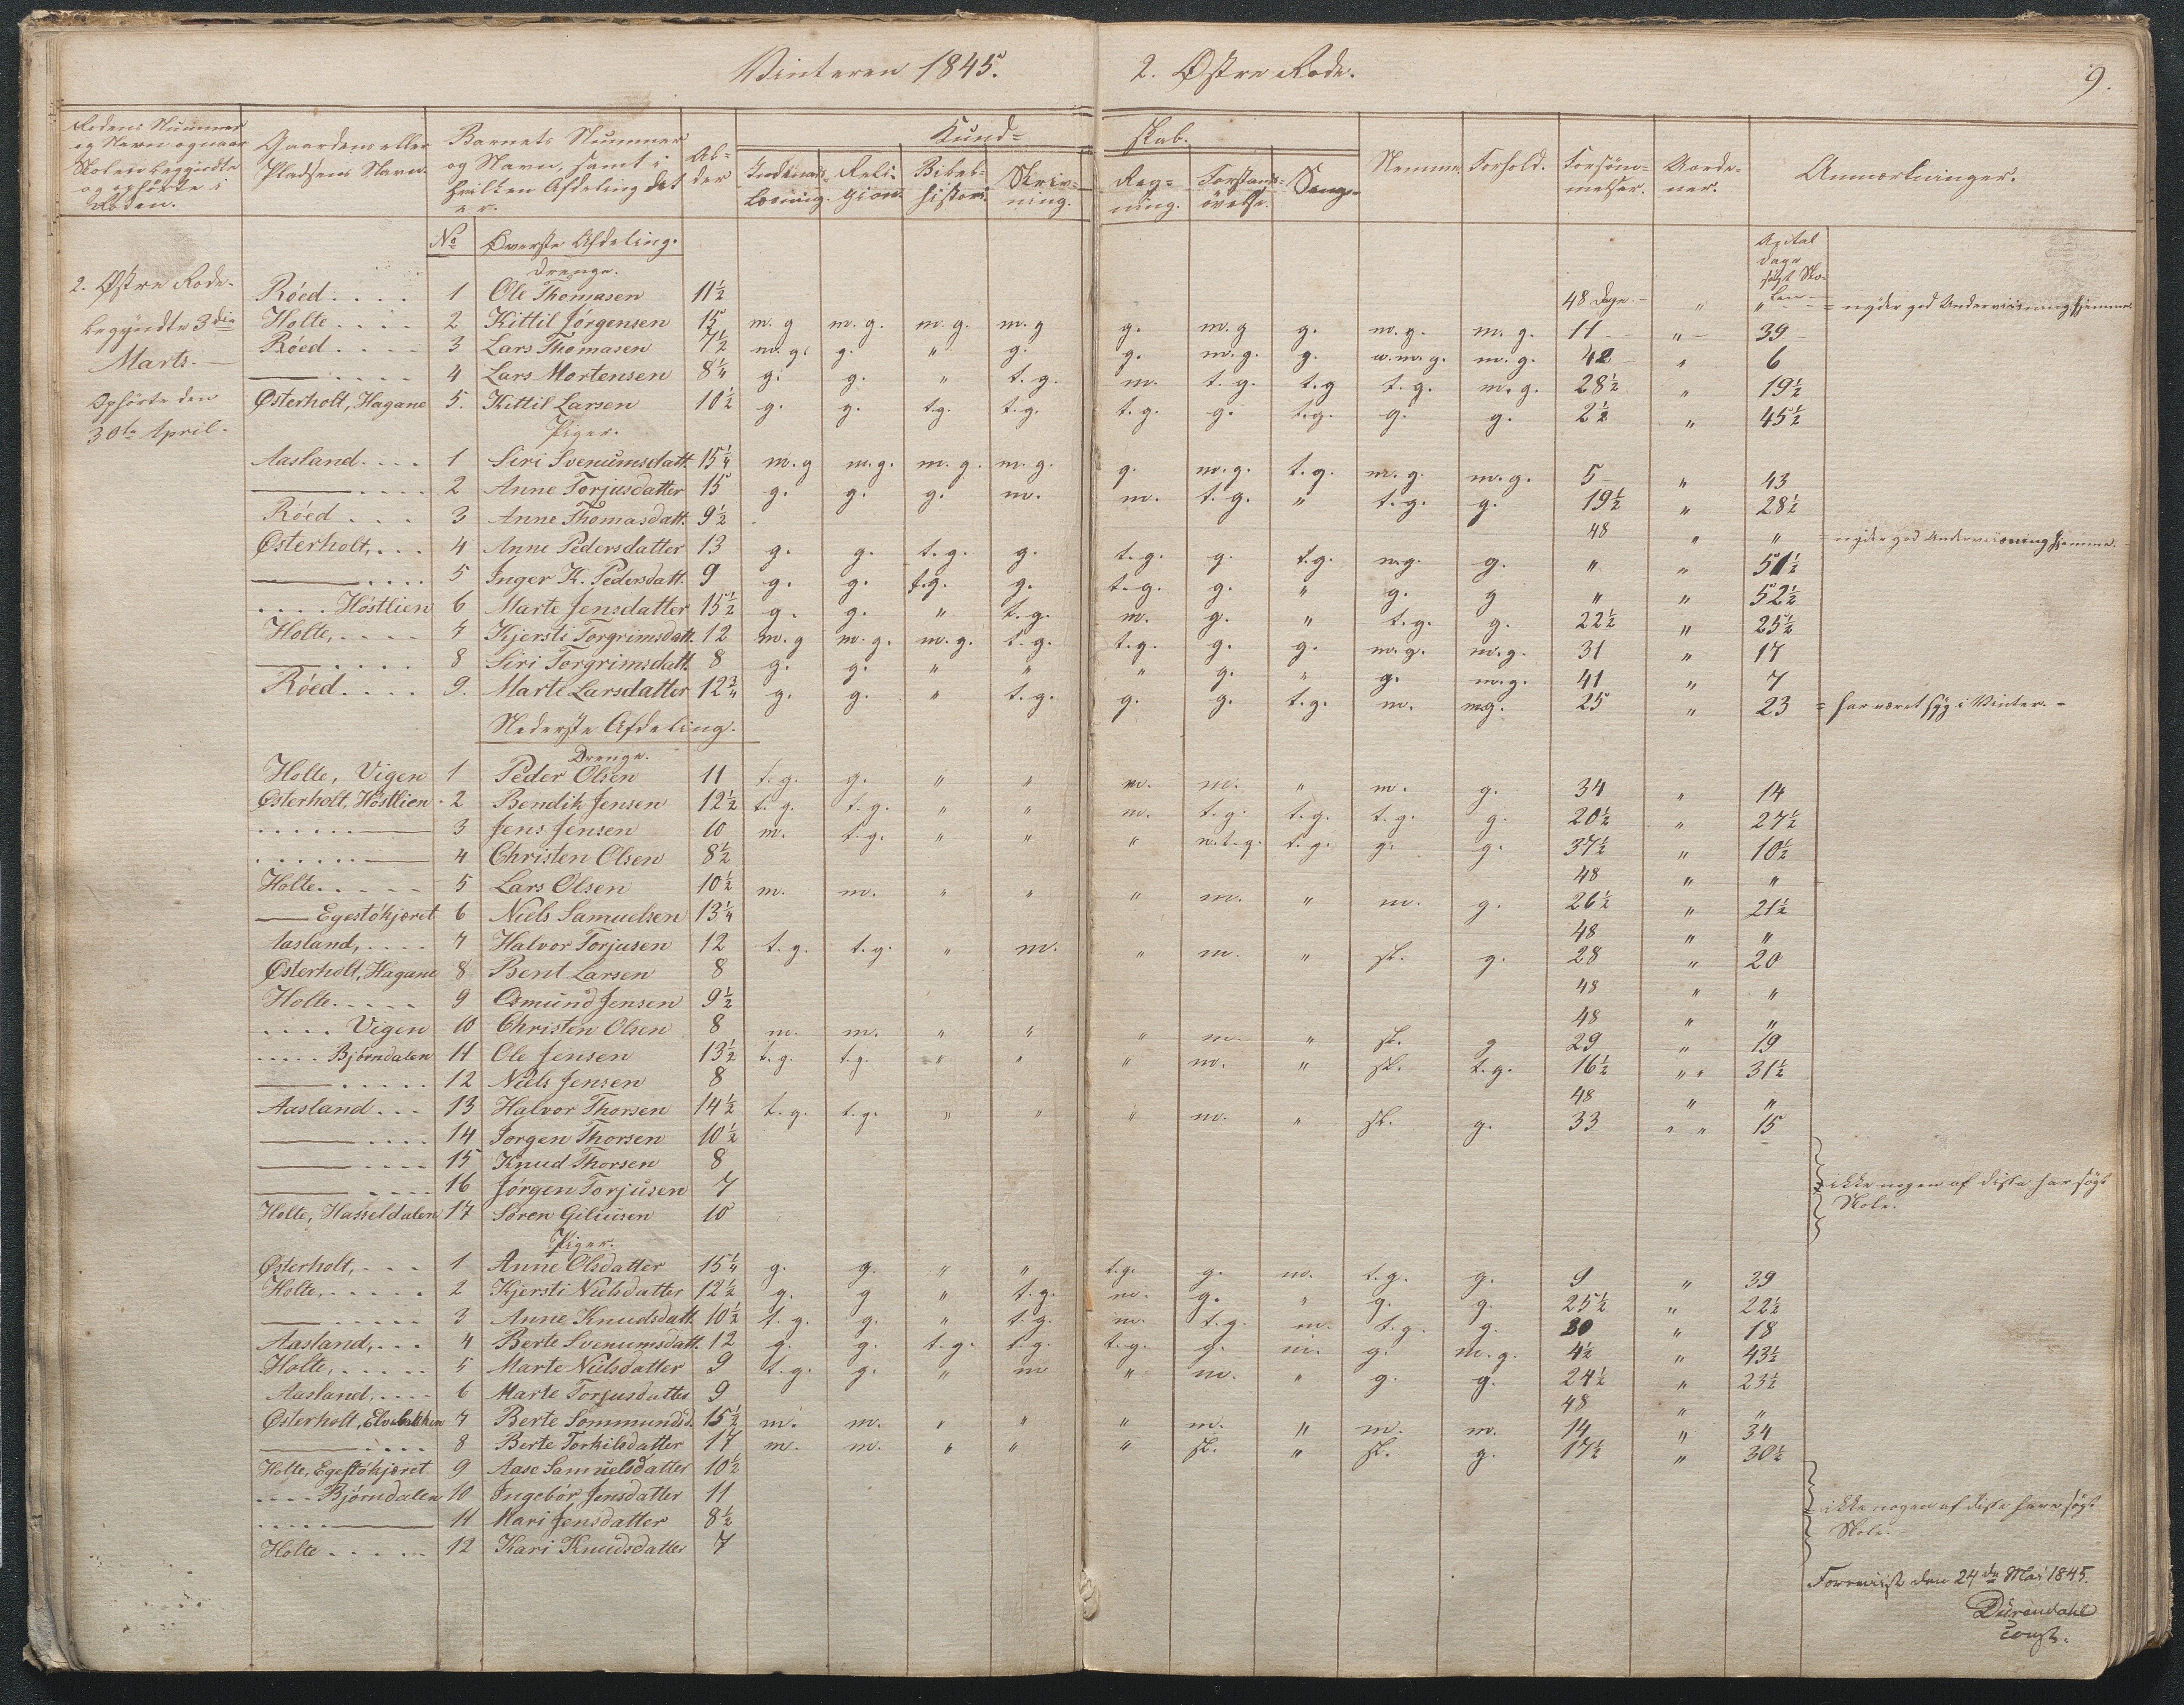 Vinteren 1845. 2. Østre Rode. 9.
Rodens Nummer og Navn og naar Skolen begyndte og ophörte i Roden. Gaardens eller Pladsens Navn. Barnets Nummer og Navn, samt i hvilken Afdeling det er. Al-der Kund-skab. Indenads-Læsning. Reli-gion. Bibel-histori Skriv-ning. Reg-ning. Forstands-övelse. Sang. Nemme. Forhold. Forsöm-melser. Anmærkninger.
No Överste Afdeling. Antal dage sögt Sko-len
Drenge.
2. Østre Rode. Röed .... 1 Ole Thomasen 11½ 48 Dage - " " = nyder god Underviisning hjemme.
begyndte 3die Holte .... 2 Kittil Jörgensen 15 m.g m.g. m.g. m.g g. m.g g. m.g. m.g. 11 " 39
Marts. Röed .... 3 Lars Thomasen 7½ m.g. g. " g. g. m.g. g. u.m.g. m.g. 42 " 6
— .... 4 Lars Mortensen 8¼ g. g. " t.g. m. t.g. t.g t.g. m.g. 28½ " 19½
Ophörte den Østerholt, Hagane 5. Kittil Larsen 10½ g. g. t.g. t.g. t.g. g. t.g. g. g. 2½ " 45½
30te April. Piger.
Aasland .... 1 Siri Svenumsdatt. 15¼ m.g m.g. m.g. m.g. g. m.g. t.g. m.g. m.g. 5 " 43
— .... 2 Anne Torjusdatter 15 g. g. g. m. m. t.g. " t.g. g. 19½ " 28½
Röed ... 3 Anne Thomasdatt. 9½ 48 " " = nyder god Underviisning hjemme.
Østerholt, ... 4 Anne Pedersdatter 13 g. g. t.g. g. t.g. g. t.g. m.g. g. " " 51½
— .... 5 Inger K. Pedersdatt. 9 g. g. t.g. g. t.g. g. " g. g " " 52½
.... Höstlien 6 Marte Jensdatter 15½ g. g. " t.g. m. g. " t.g. g. 22½ " 25½
Holte, .... 7 Kjersti Torgrimsdatt. 12 m.g m.g. m.g. t.g. t.g. g. g. m.g. m.g. 31 " 17
— .... 8 Siri Torgrimsdatt. 8 g. g. " " " g. " g. m.g. 41 " 7
Röed .... 9. Marte Larsdatter 12¾ g. g. " t.g. g. g. t.g. m. m.g. 25 " 23 = har været syg i Vinter. -
Nederste Afdeling.
Drenge.
Holte, Vigen 1 Peder Olsen 11 t.g. g. " " m. m. " m. g. 34 " 14
Østerholt, Höstlien 2 Bendik Jensen 12½ t.g. t.g. " " m. t.g. t.g. t.g. g. 20½ " 27½
...... — 3 Jens Jensen 10 m. t.g. " " " n.t.g. t.g. g. g. 37½ " 10½
...... — 4 Christen Olsen 8½ 48 " "
Holte ..... 5 Lars Olsen 10½ m. m. " " " m. " m. g. 26½ " 21½
— Egestökjæret 6 Niels Samuelsen 13¼ 48 " "
Aasland, .... 7 Halvor Torjusen 12 t.g. t.g " m. " m. " sl. g. 28 " 20
Østerholt, Hagane 8 Bent Larsen 8 48 " "
Holte ..... 9 Osmund Jensen 9½ 48 " "
.... Vigen 10 Christen Olsen 8 m. m. " " " m. " sl. g 29 " 19
..... Björndalen 11 Ole Jensen 13½ t.g. t.g. " " " m. " sl. t.g. 16½ " " 31½
— ..... 12 Niels Jensen 8 48 " "
Aasland ... 13 Halvor Thorsen 14½ t.g. t.g. " " " m. " sl. g. 33 " " 15
— .... 14 Jorgen Thorsen 10½
— .... 15 Knud Thorsen 8
— .... 16 Jörgen Torjusen 7 ikke nogen af disse har sögt
Holte, Hasseldalen 17 Sören Giliusen 10 Skole.
Piger.
Østerholt, ... 1 Anne Olsdatter 15¼ g. g. " " t.g. g. m. t.g. g. 9 " 39
Holte, ..... 2 Kjersti Nielsdatter 12½ g. g " t.g. m. g. " g. g. 25½ " 22½
— ..... 3 Anne Knudsdatt. 10½ t.g. g. " t.g. m. t.g. m. t.g. g. 30 " 18
Aasland, ... 4 Berte Svenumsdatt. 12 g. g. t.g. t.g. t.g. g. m. g. m.g. 4½ " 43½
Holte, ..... 5 Marte Nielsdatter 9 t.g. g. " m " m. " g. g. 24½ " 23½
Aasland, .... 6 Marte Torjusdatter 9 48 " "
Østerholt, Elvebakken 7 Berte Sommundsd. 15½ m. m. " " " m. " m. m. 14 " 34
— .... 8 Berte Torkilsdatter 17 m. m. " " " sl. " sl. g. 17½ " 30½
Holte, Egestökjæret 9 Aase Samuelsdatter 10½
.... Björndalen 10 Ingebor Jensdatter 11
..... — 11 Mari Jensdatter 8½ ikke nogen af disse have sögt
Holte ..... 12 Kari Knudsdatter 7 Skole.
Foreviist den 24de Mai 1845.